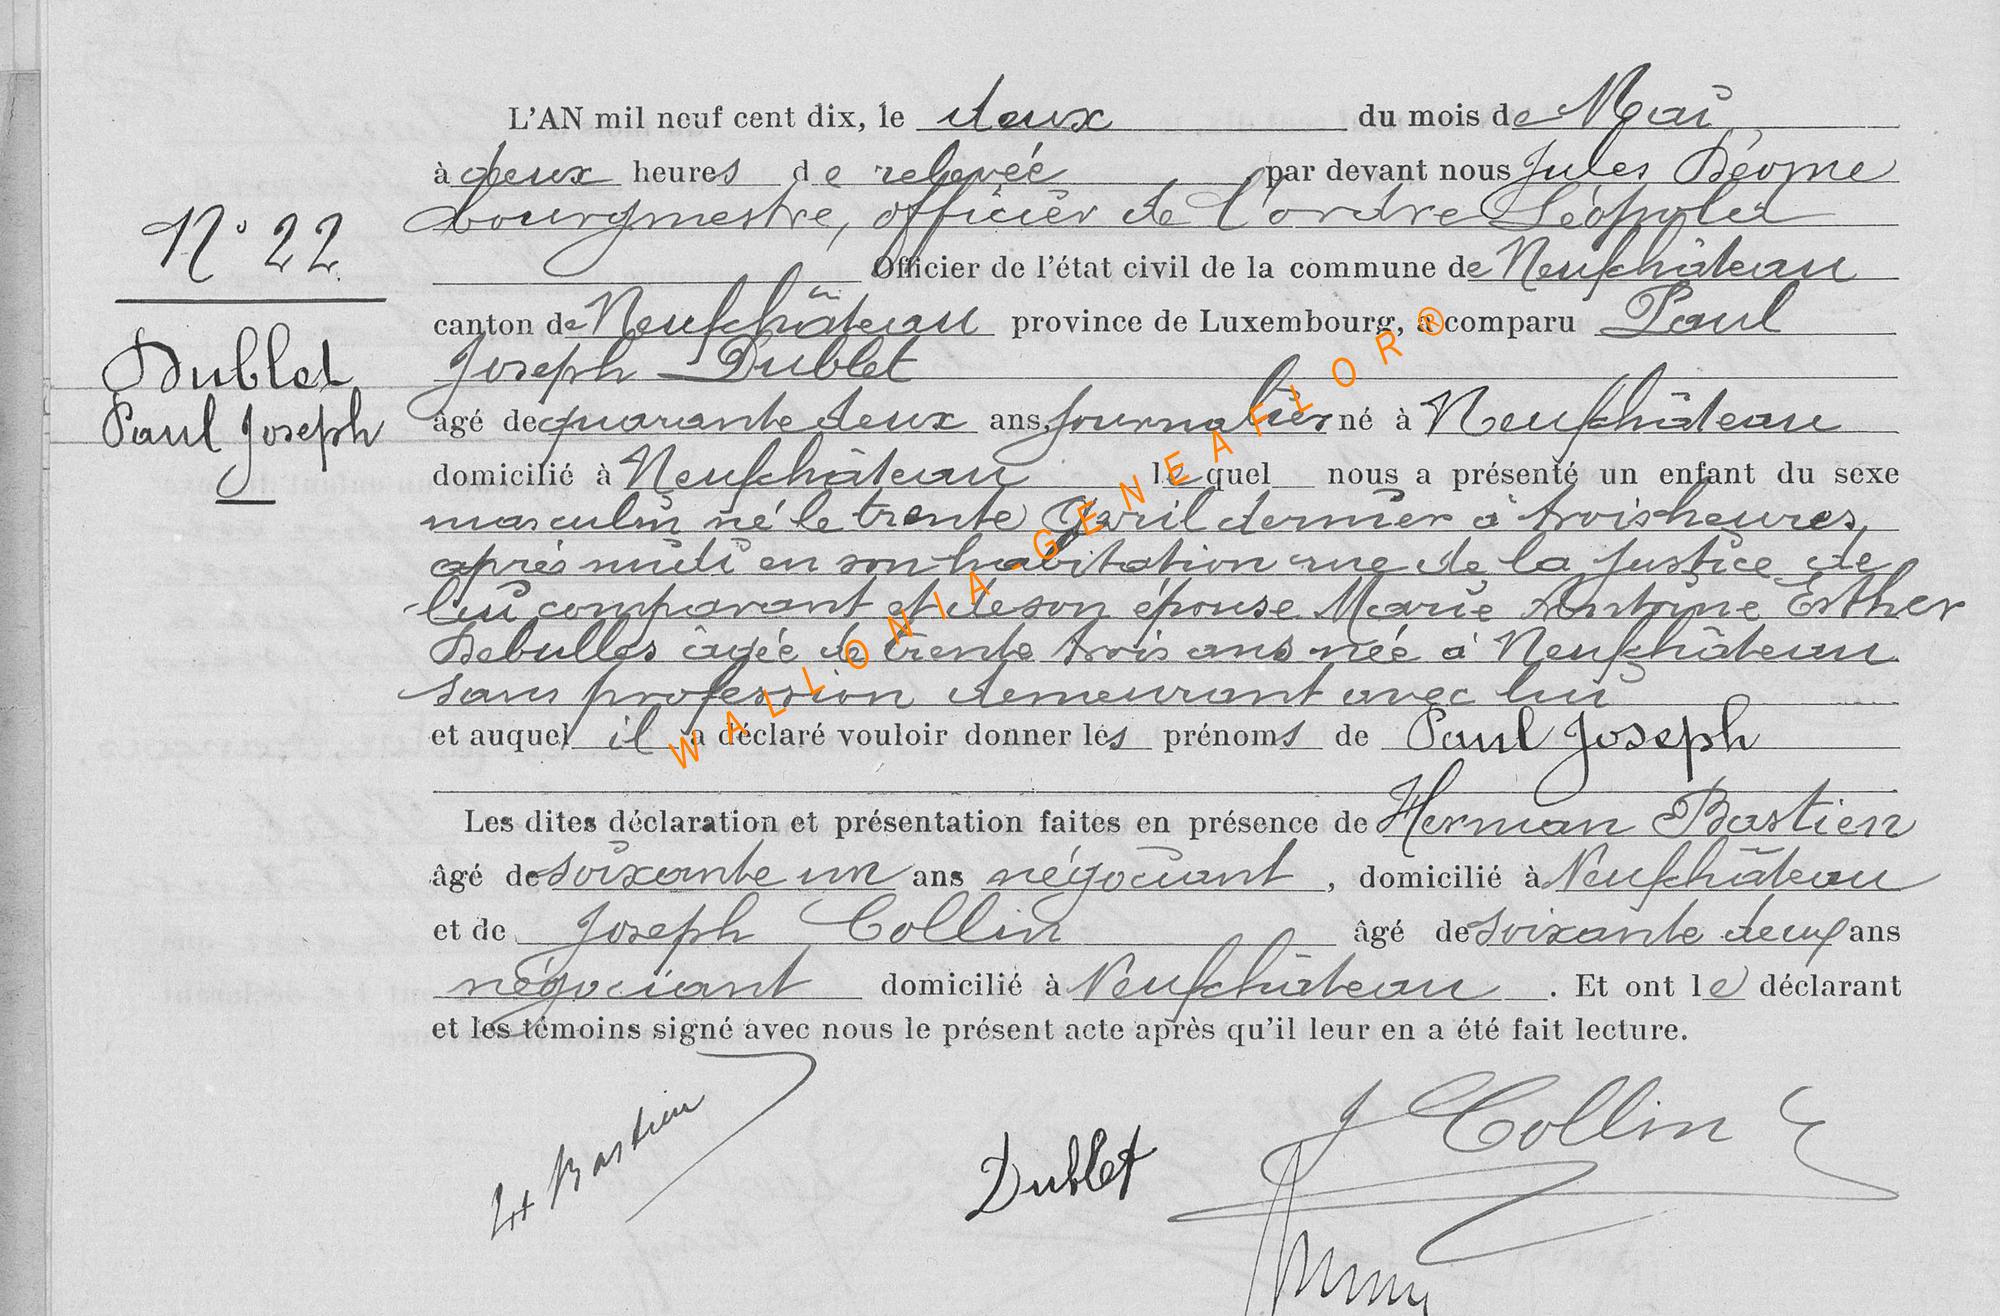 N° 22
Dublet
Paul Joseph
L'AN mil neuf cent dix, le deux du mois de Mai
à deux heures de relevée par devant nous Jules Déome
bourgmestre, officier de l'ordre Léopold
Officier de l'état civil de la commune de Neufchâteau
canton de Neufchâteau province de Luxembourg, a comparu Paul
Joseph Dublet
âgé de quarante deux ans, journalier né à Neufchâteau
domicilié à Neufchâteau lequel nous a présenté un enfant du sexe
masculin né le trente Avril dernier à trois heures
après midi en son habitation rue de la Justice de
lui comparant et de son épouse Marie Antoine Esther
Debulles âgée de trente trois ans née à Neufchâteau
sans profession demeurant avec lui
et auquel il a déclaré vouloir donner les prénoms de Paul Joseph
Les dites déclaration et présentation faites en présence de Herman Bastien
âgé de soixante un ans négociant, domicilié à Neufchâteau
et de Joseph Collin âgé de soixante deux ans
négociant domicilié à Neufchâteau. Et ont le déclarant
et les témoins signé avec nous le présent acte après qu'il leur en a été fait lecture.
H Bastien
Dublet
J Collin
WALLONIA-GENEAFLOR®